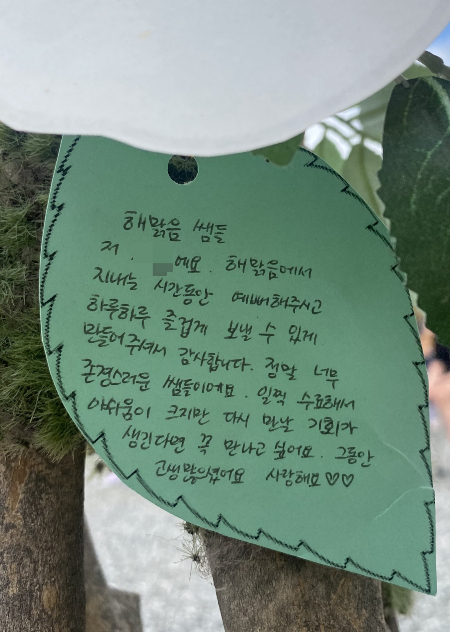 해맑음 쌤들
저. 에요. 해맑음에서
지내는 시간동안 예뻐해주시고
하루하루 즐겁게 보낼 수 있게
만들어주셔서 감사합니다. 정말 너무
존경스러운 쌤들이에요. 일찍 수료해서
아쉬움이 크지만 다시 만날 기회가
생긴다면 꼭 만나고 싶어요. 그동안
고생많으셨어요 사랑해요♡♡